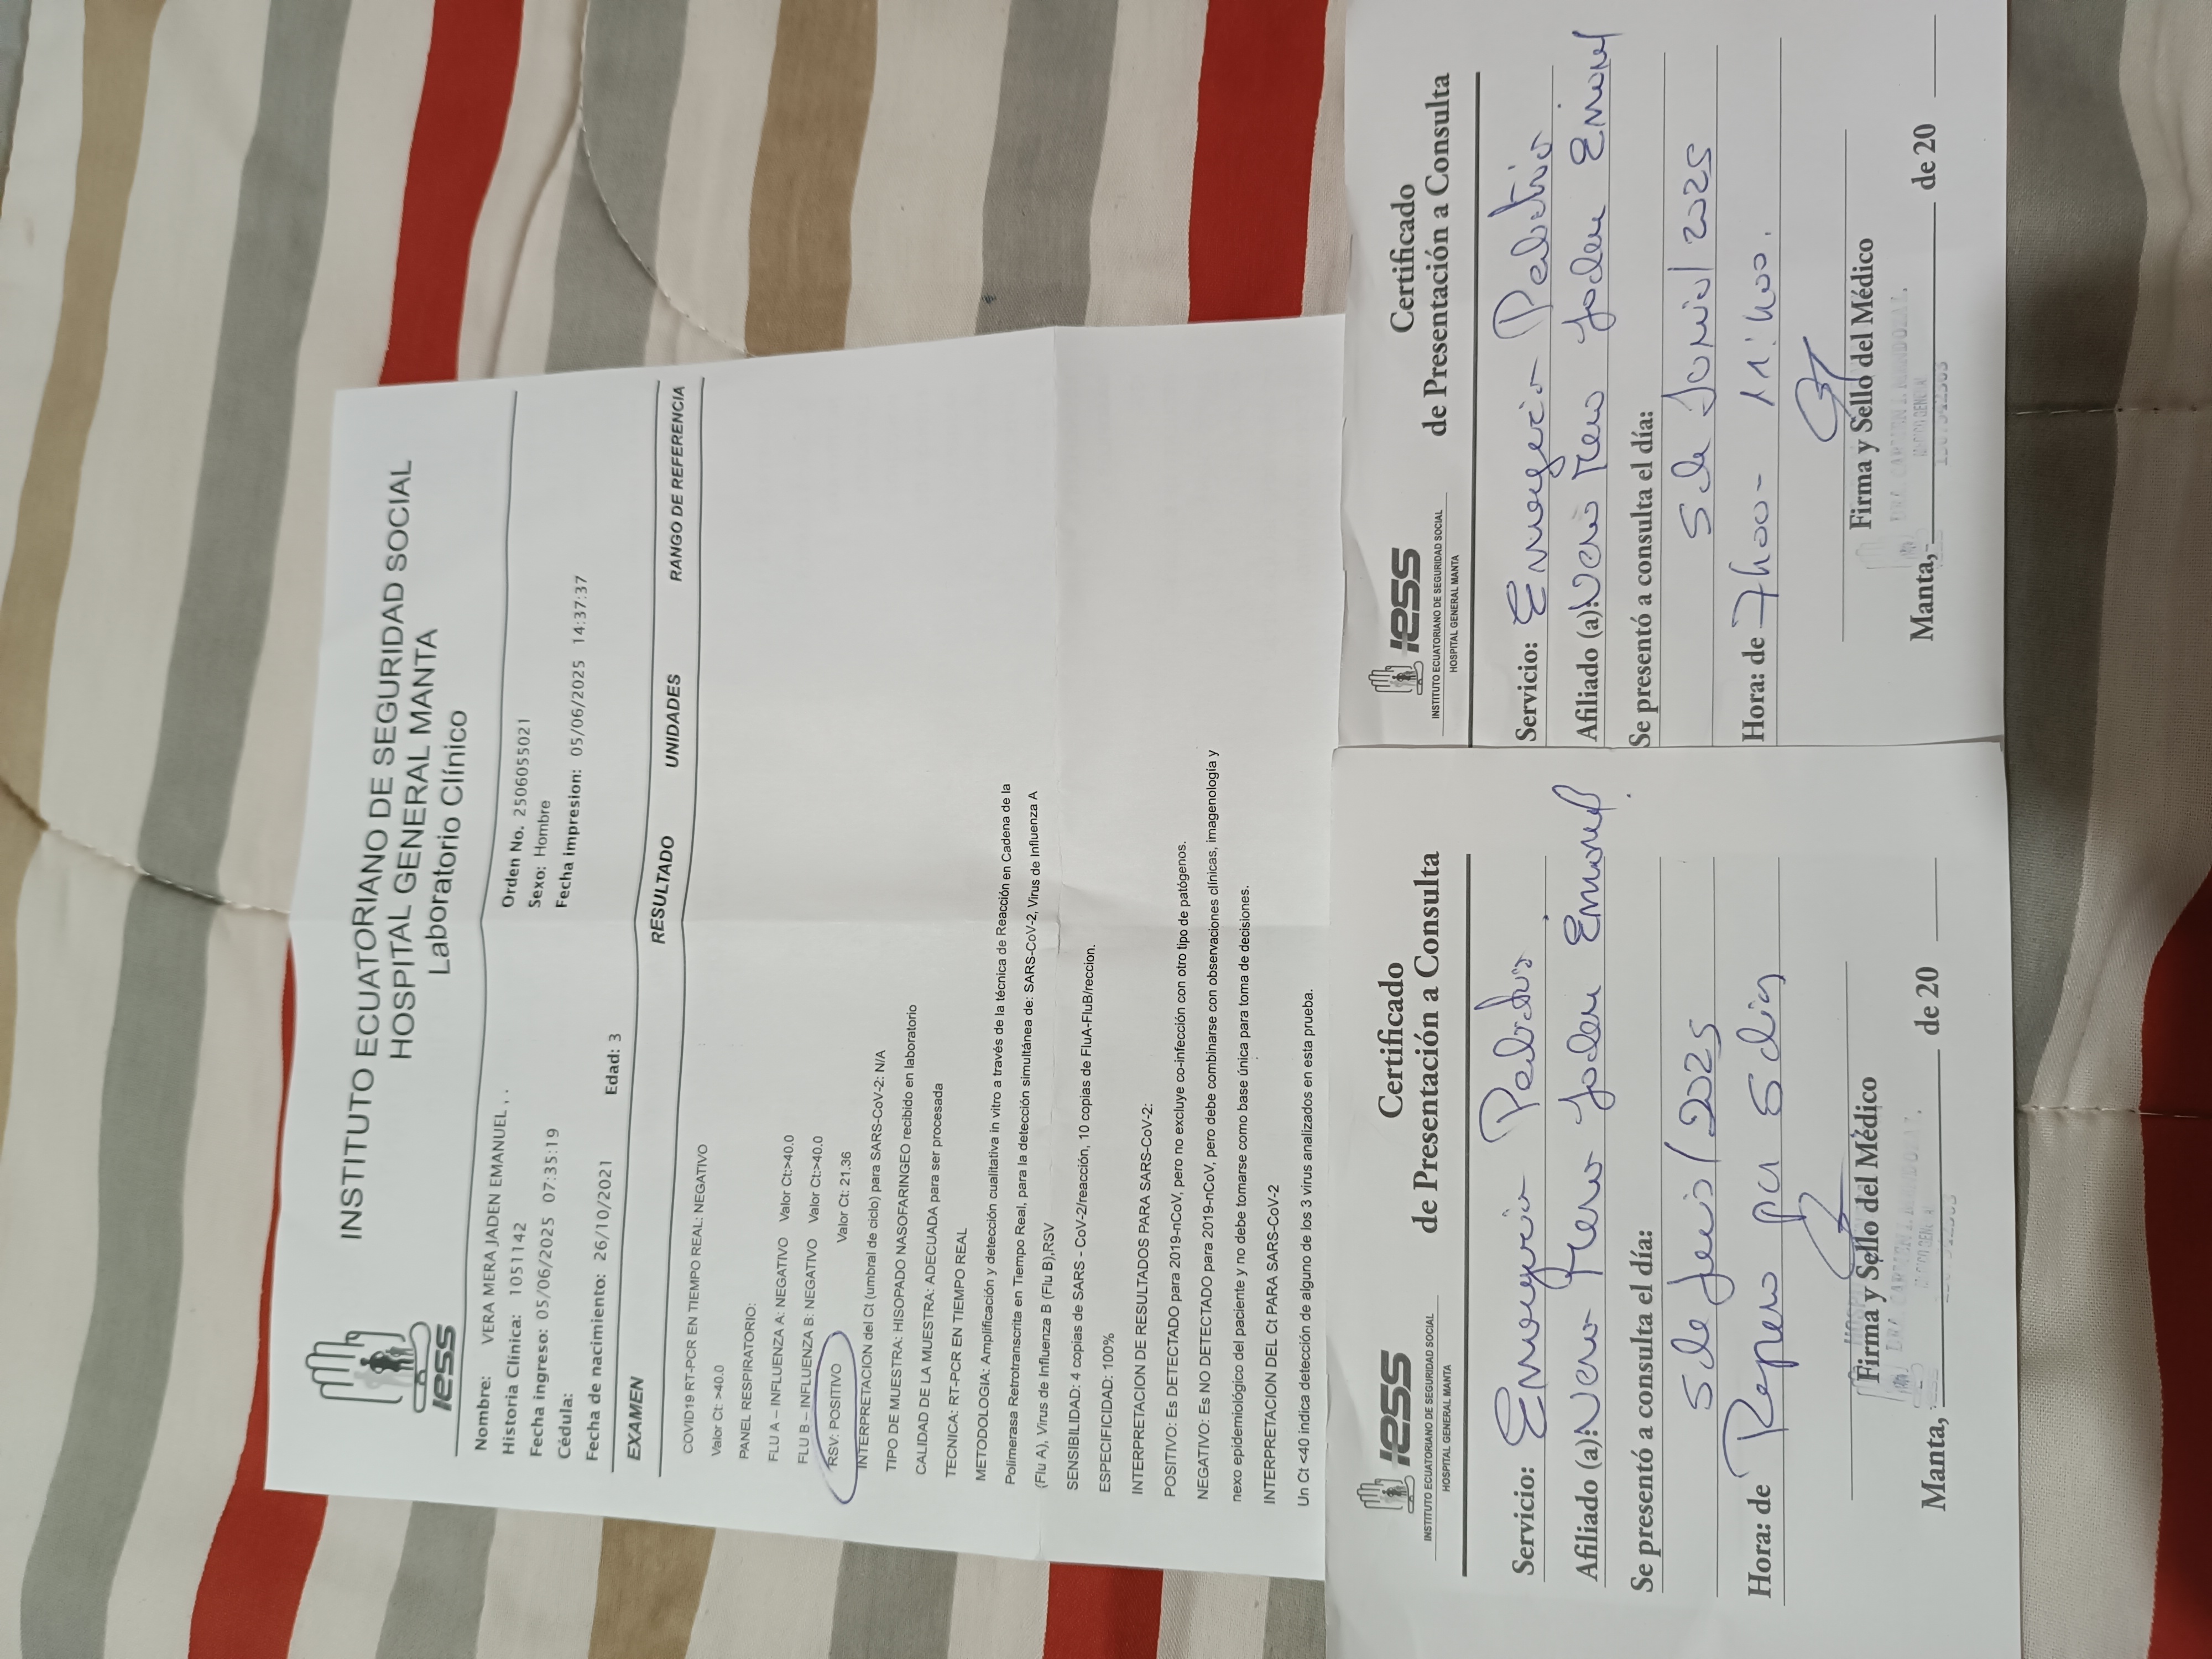 INSTITUTO ECUATORIANO DE SEGURIDAD SOCIAL
HOSPITAL GENERAL MANTA
Laboratorio Clínico
IESS
Nombre: VERA MERA JADEN EMANUEL . .
Historia Clinica: 1051142
Orden No. 2506055021
Fecha ingreso: 05/06/2025 07:35:19
Sexo: Hombre
Cédula:
Fecha impresion: 05/06/2025 14:37:37
Fecha de nacimiento: 26/10/2021 Edad: 3
EXAMEN RESULTADO UNIDADES RANGO DE REFERENCIA
COVID19 RT-PCR EN TIEMPO REAL: NEGATIVO
Valor Ct: >40.0
PANEL RESPIRATORIO:
FLU A – INFLUENZA A: NEGATIVO Valor Ct:>40.0
FLU B – INFLUENZA B: NEGATIVO Valor Ct:>40.0
RSV: POSITIVO Valor Ct: 21.36
INTERPRETACION del Ct (umbral de ciclo) para SARS-CoV-2: N/A
TIPO DE MUESTRA: HISOPADO NASOFARINGEO recibido en laboratorio
CALIDAD DE LA MUESTRA: ADECUADA para ser procesada
TECNICA: RT-PCR EN TIEMPO REAL
METODOLOGIA: Amplificación y detección cualitativa in vitro a través de la técnica de Reacción en Cadena de la
Polimerasa Retrotranscrita en Tiempo Real, para la detección simultánea de: SARS-CoV-2, Virus de Influenza A
(Flu A), Virus de Influenza B (Flu B),RSV
SENSIBILIDAD: 4 copias de SARS - CoV-2/reacción, 10 copias de FluA-FluB/reccion.
ESPECIFICIDAD: 100%
INTERPRETACION DE RESULTADOS PARA SARS-CoV-2:
POSITIVO: Es DETECTADO para 2019-nCoV, pero no excluye co-infección con otro tipo de patógenos.
NEGATIVO: Es NO DETECTADO para 2019-nCoV, pero debe combinarse con observaciones clínicas, imagenología y
nexo epidemiológico del paciente y no debe tomarse como base única para toma de decisiones.
INTERPRETACION DEL Ct PARA SARS-CoV-2
Un Ct <40 indica detección de alguno de los 3 virus analizados en esta prueba.
IESS
INSTITUTO ECUATORIANO DE SEGURIDAD SOCIAL
HOSPITAL GENERAL MANTA
Certificado
de Presentación a Consulta
Servicio: Emergencia Pediatria
Afiliado (a): Vera Mera Jaden Emanuel
Se presentó a consulta el día:
5 de Junio/2025
Hora: de Reposo por 5 dias
Firma y Sello del Médico
Manta, de 20
IESS
INSTITUTO ECUATORIANO DE SEGURIDAD SOCIAL
HOSPITAL GENERAL MANTA
Certificado
de Presentación a Consulta
Servicio: Emergencia Pediatria
Afiliado (a): Vera Mera Jaden Emanuel
Se presentó a consulta el día:
5 de Junio/2025
Hora: de 7h00 - 11:h00.
Firma y Sello del Médico
Manta, de 20